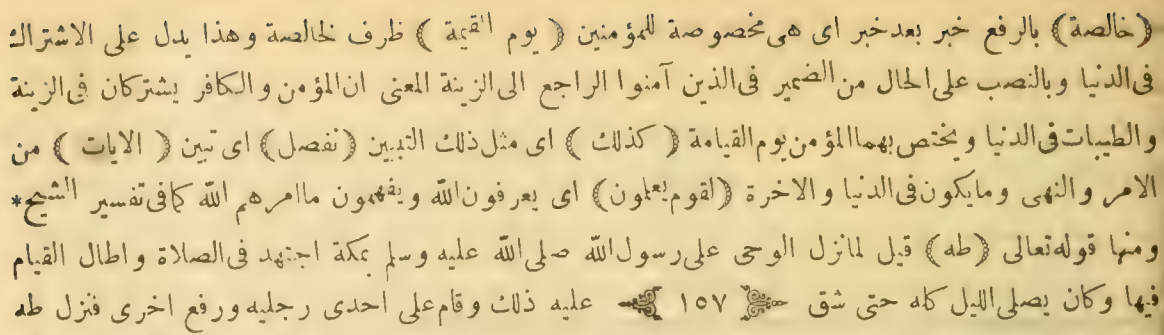 (خالصة) بالرفع خبر بعد خبر اى هى مخصوصة للمؤمنين (يوم القيمة) ظرف لخالصة وهذا يدل على الاشتراك
فى الدنيا وبالنصب على الحال من الضمير فى الذين آمنوا الراجع الى الزينة المعنى ان المؤمن والكافر يشتركان فى الزينة
والطيبات فى الدنيا ويختص بهما المؤمن يوم القيامة (كذلك) اى مثل ذلك التبيين (نفصل) اى تبين (الايات) من
الامر والنهى وما يكون فى الدنيا والاخرة (لقوم يعلمون) اى يعرفون الله ويفهمون ما امرهم الله كما فى تفسير الشيخ*
ومنها قوله تعالى (طه) قيل لما نزل الوحى على رسول الله صلى الله عليه وسلم بمكة اجتهد فى الصلاة واطال القيام
فيها وكان يصلى الليل كله حتى شق ﴿ ١٥٧ ﴾ عليه ذلك وقام على احدى رجليه ورفع اخرى فنزل طه